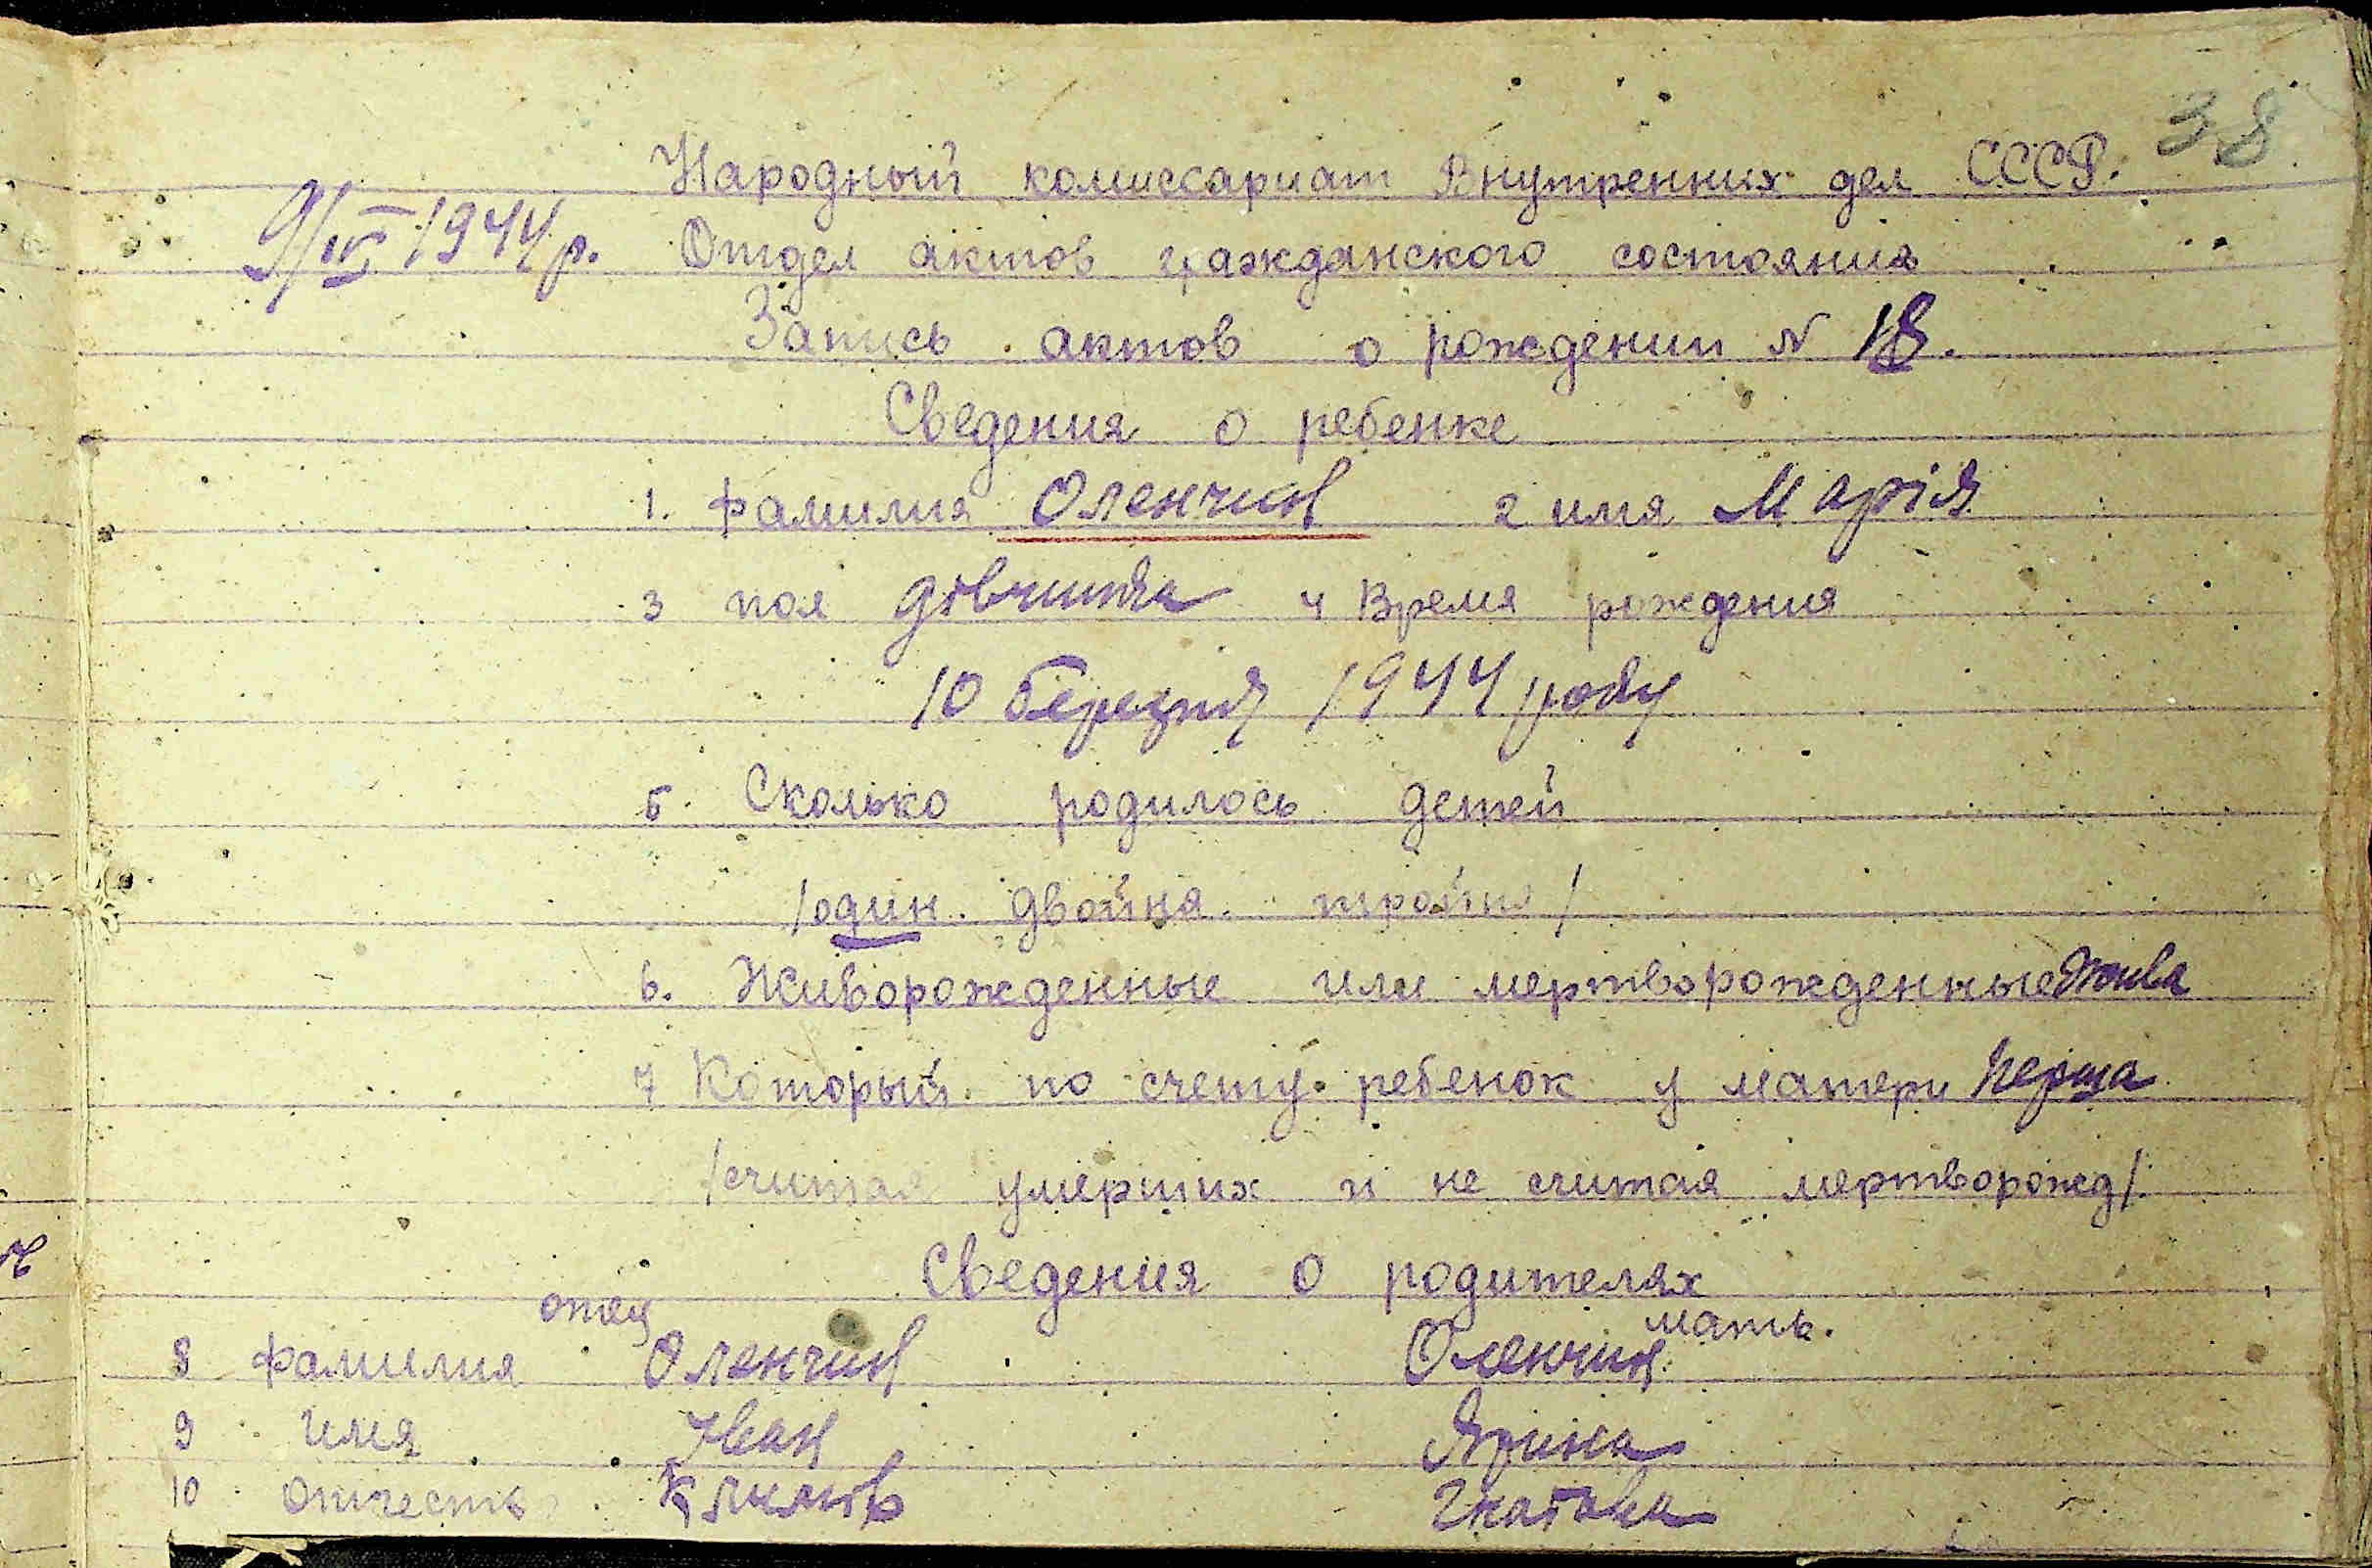 38.
Народный комиссариат Внутренних дел СССР.
9/IV 1944 р. Отдел актов гражданского состояния
Запись актов о рождении № 18.
Сведения о ребенке
1. фамилия Оленчин 2 имя Марія
3 пол дівчинка 4 Время рождения
10 березня 1944 року
5. Сколько родилось детей
/один двойня тройня/
6. Живорожденные или мертворожденные жива
7 Который по счету ребенок у матери перша
/считая умерших и не считая мертворожд/.
Сведения о родителях
отец мать.
8 фамилия Оленчин Оленчин
9 имя Іван Ярина
10 отчеств